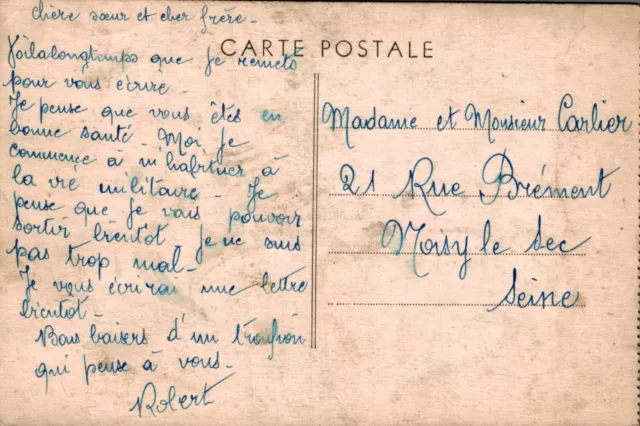 Chère sœur et cher frère -
CARTE POSTALE
Voilalongtemps que je remets
pour vous écrire -
Je pense que vous êtes en
bonne santé - Moi, je
commence à m'habituer à
la vie militaire - Je
pense que je vais pouvoir
sortir bientôt - je ne suis
pas trop mal -
Je vous écrirai une lettre
bientôt -
Bons baisers d'un troufion
qui pense à vous -
Robert
Madame et Monsieur Carlier
21 Rue Brément
Noisy le Sec
Seine